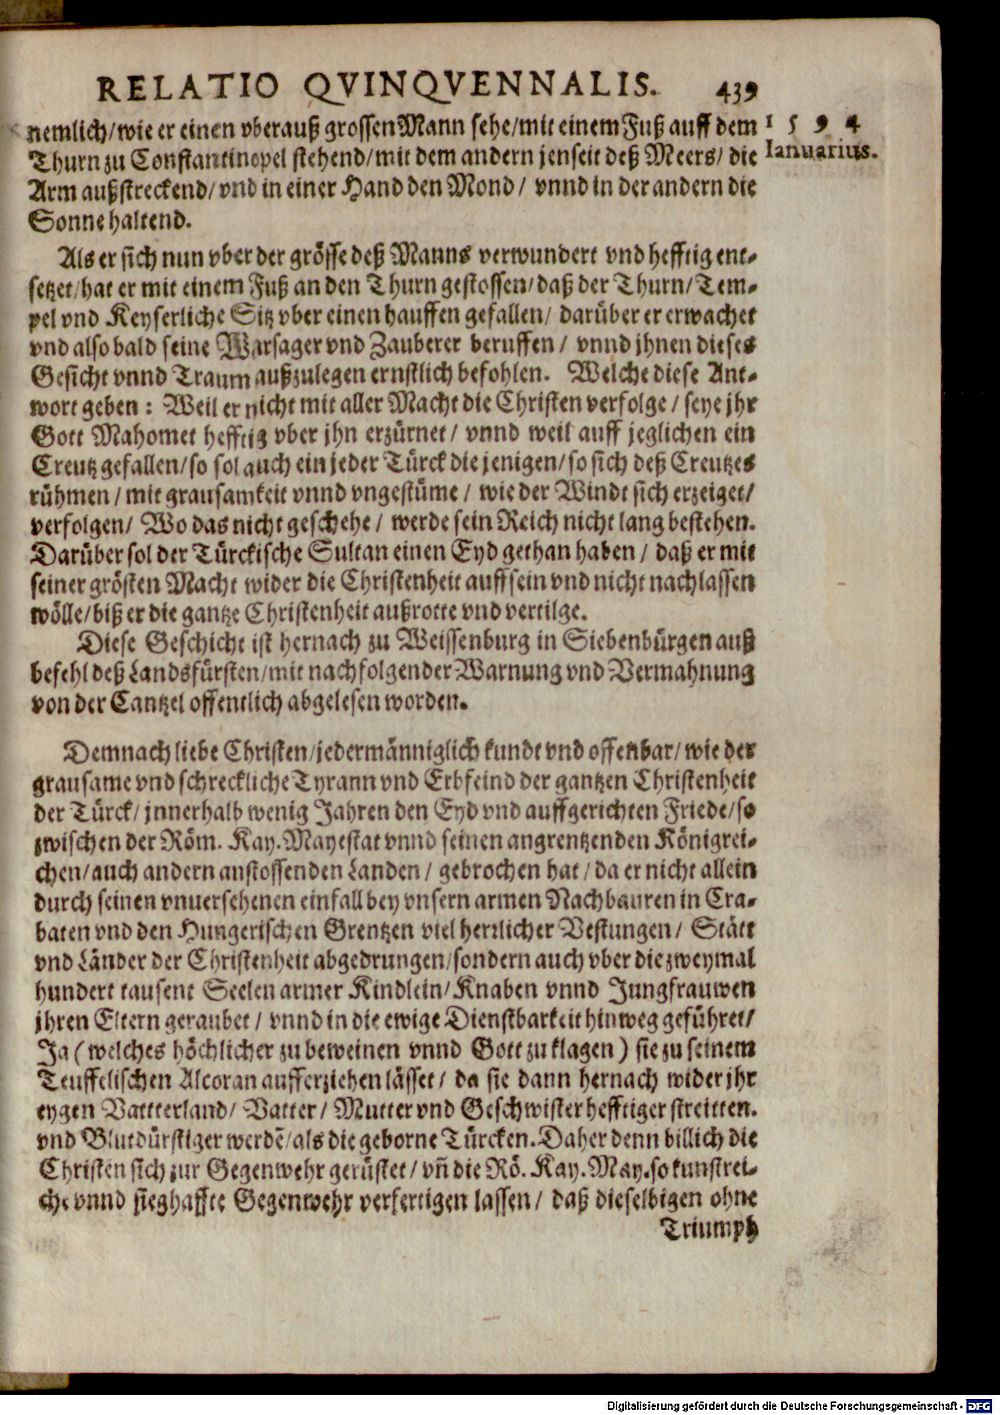 RELATIO QVINQVENNALIS. 439
nemlich/wie er einen vberauß grossen Mann sehe/mit einem Fuß auff dem
1 5 9 4
Thurn zu Constantinopel stehend/mit dem andern jenseit deß Meers/ die
Ianuarius.
Arm außstreckend/ vnd in einer Hand den Mond/ vnnd in der andern die
Sonne haltend.
Als er sich nun vber der grösse deß Manns verwundert vnd hefftig ent-
setzet/hat er mit einem Fuß an den Thurn gestossen/ daß der Thurn/ Tem-
pel vnd Keyserliche Sitz vber einen hauffen gefallen/ darüber er erwachet
vnd also bald seine Warsager vnd Zauberer beruffen/ vnnd jhnen dieses
Gesicht vnnd Traum außzulegen ernstlich befohlen. Welche diese Ant-
wort geben: Weil er nicht mit aller Macht die Christen verfolge/ seye jhr
Gott Mahomet hefftig vber jhn erzürnet/ vnnd weil auff jeglichen ein
Creutz gefallen/so sol auch ein jeder Türck die jenigen/ so sich deß Creutzes
rühmen/ mit grausamkeit vnnd vngestüme/ wie der Windt sich erzeiget/
verfolgen/ Wo das nicht geschehe/ werde sein Reich nicht lang bestehen.
Darüber sol der Türckische Sultan einen Eyd gethan haben/ daß er mit
seiner grösten Macht wider die Christenheit auff sein vnd nicht nachlassen
wölle/biß er die gantze Christenheit außrotte vnd vertilge.
Diese Geschicht ist hernach zu Weissenburg in Siebenbürgen auß
befehl deß Landsfürsten/mit nachfolgender Warnung vnd Vermahnung
von der Cantzel offentlich abgelesen worden.
Demnach liebe Christen/jedermänniglich kundt vnd offenbar/ wie der
grausame vnd schreckliche Tyrann vnd Erbfeind der gantzen Christenheit
der Türck/ jnnerhalb wenig Jahren den Eyd vnd auffgerichten Friede/so
zwischen der Röm. Kay. Mayestat vnnd seinen angrentzenden Königrei-
chen/auch andern anstossenden Landen/ gebrochen hat/ da er nicht allein
durch seinen vnuersehenen einfall bey vnsern armen Nachbauren in Cra-
baten vnd den Hungerischen Grentzen viel herrlicher Vestungen/ Stätt
vnd Länder der Christenheit abgedrungen/sondern auch vber die zweymal
hundert tausent Seelen armer Kindlein/ Knaben vnnd Jungfrauwen
jhren Eltern geraubet/ vnnd in die ewige Dienstbarkeit hinweg geführet/
Ja (welches höchlicher zu beweinen vnnd Gott zu klagen) sie zu seinem
Teuffelischen Alcoran aufferziehen lässet/ da sie dann hernach wider jhr
eygen Vattterland/ Vatter/ Mutter vnd Geschwister hefftiger streitten.
vnd Blutdürstiger werdē/als die geborne Türcken. Daher denn billich die
Christen sich zur Gegenwehr gerüstet/ vñ die Rö. Kay. May. so kunstrei-
che vnnd sieghaffte Gegenwehr verfertigen lassen/ daß dieselbigen ohne
Triumph
Digitalisierung gefördert durch die Deutsche Forschungsgemeinschaft - DFG